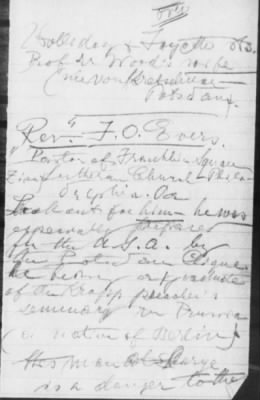 Holliday & Fayette Sts.
Prof. Dr Wood's wife
née von
Potsdam.
"Rev." F. O. Evers.
Pastor of Franklin Square
Zion Lutheran Church - Phila-
delphia. Pa
Look out for him - he was
especially prepared
for the U.S.A. by
the Potsdam Clique
he being a graduate
of the preacher's
seminary in Prussia
(a native of Berlin)
this man at large
is a danger to the